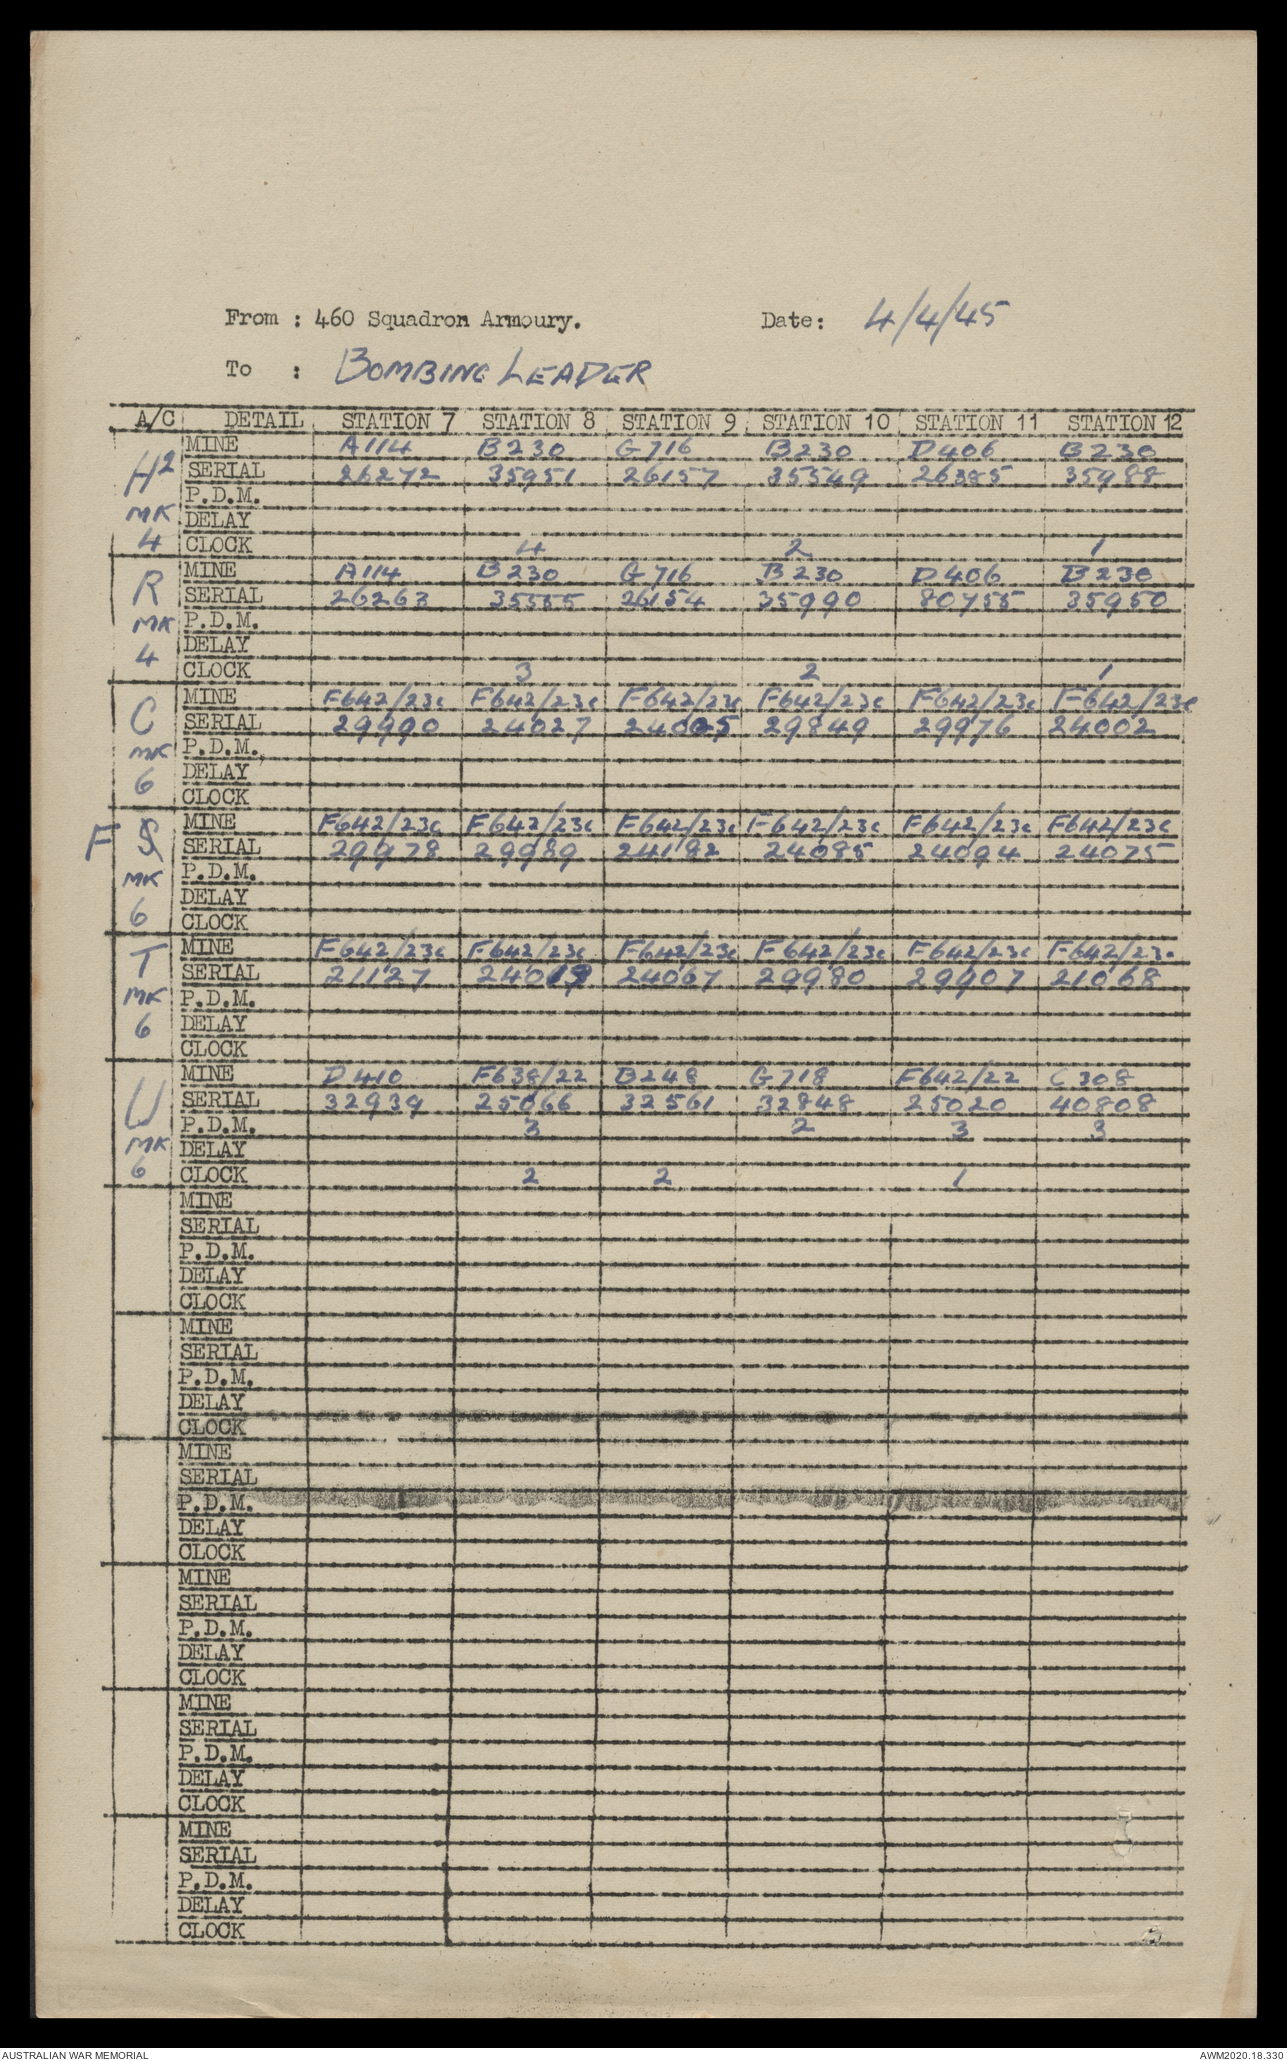 From : 460 Squadron Armoury. Date: 4/4/45
To : BOMBING LEADER
A/C DETAIL STATION 7 STATION 8 STATION 9 STATION 10 STATION 11 STATION 12
MINE A114 B230 G716 B230 D406 B230
H2 SERIAL 26272 35951 26157 35549 26385 35988
P.D.M.
MK DELAY
4 CLOCK 4 2 1
MINE A114 B230 G716 B230 D406 B230
R SERIAL 26263 35585 26154 35990 80755 35950
MK P.D.M.
4 DELAY
CLOCK 3 2 1
MINE F642/23c F642/23c F642/23c F642/23c F642/23c F642/23c
C SERIAL 29990 24027 24005 29849 29976 24002
MK P.D.M.
6 DELAY
CLOCK
MINE F642/23c F642/23c F642/23c F642/23c F642/23c F642/23c
F S SERIAL 29978 29989 24182 24085 24094 24075
MK P.D.M.
6 DELAY
CLOCK
MINE F642/23c F642/23c F642/23c F642/23c F642/23c F642/23.
T SERIAL 21127 24019 24067 29980 29907 21068
MK P.D.M.
6 DELAY
CLOCK
MINE D410 F638/22 B248 G718 F642/22 C308
U SERIAL 32939 25066 32561 32848 25020 40808
P.D.M. 3 2 3 3
MK DELAY
6 CLOCK 2 2 1
MINE
SERIAL
P.D.M.
DELAY
CLOCK
MINE
SERIAL
P.D.M.
DELAY
CLOCK
MINE
SERIAL
P.D.M.
DELAY
CLOCK
MINE
SERIAL
P.D.M.
DELAY
CLOCK
MINE
SERIAL
P.D.M.
DELAY
CLOCK
MINE
SERIAL
P.D.M.
DELAY
CLOCK
AUSTRALIAN WAR MEMORIAL AWM2020.18.330